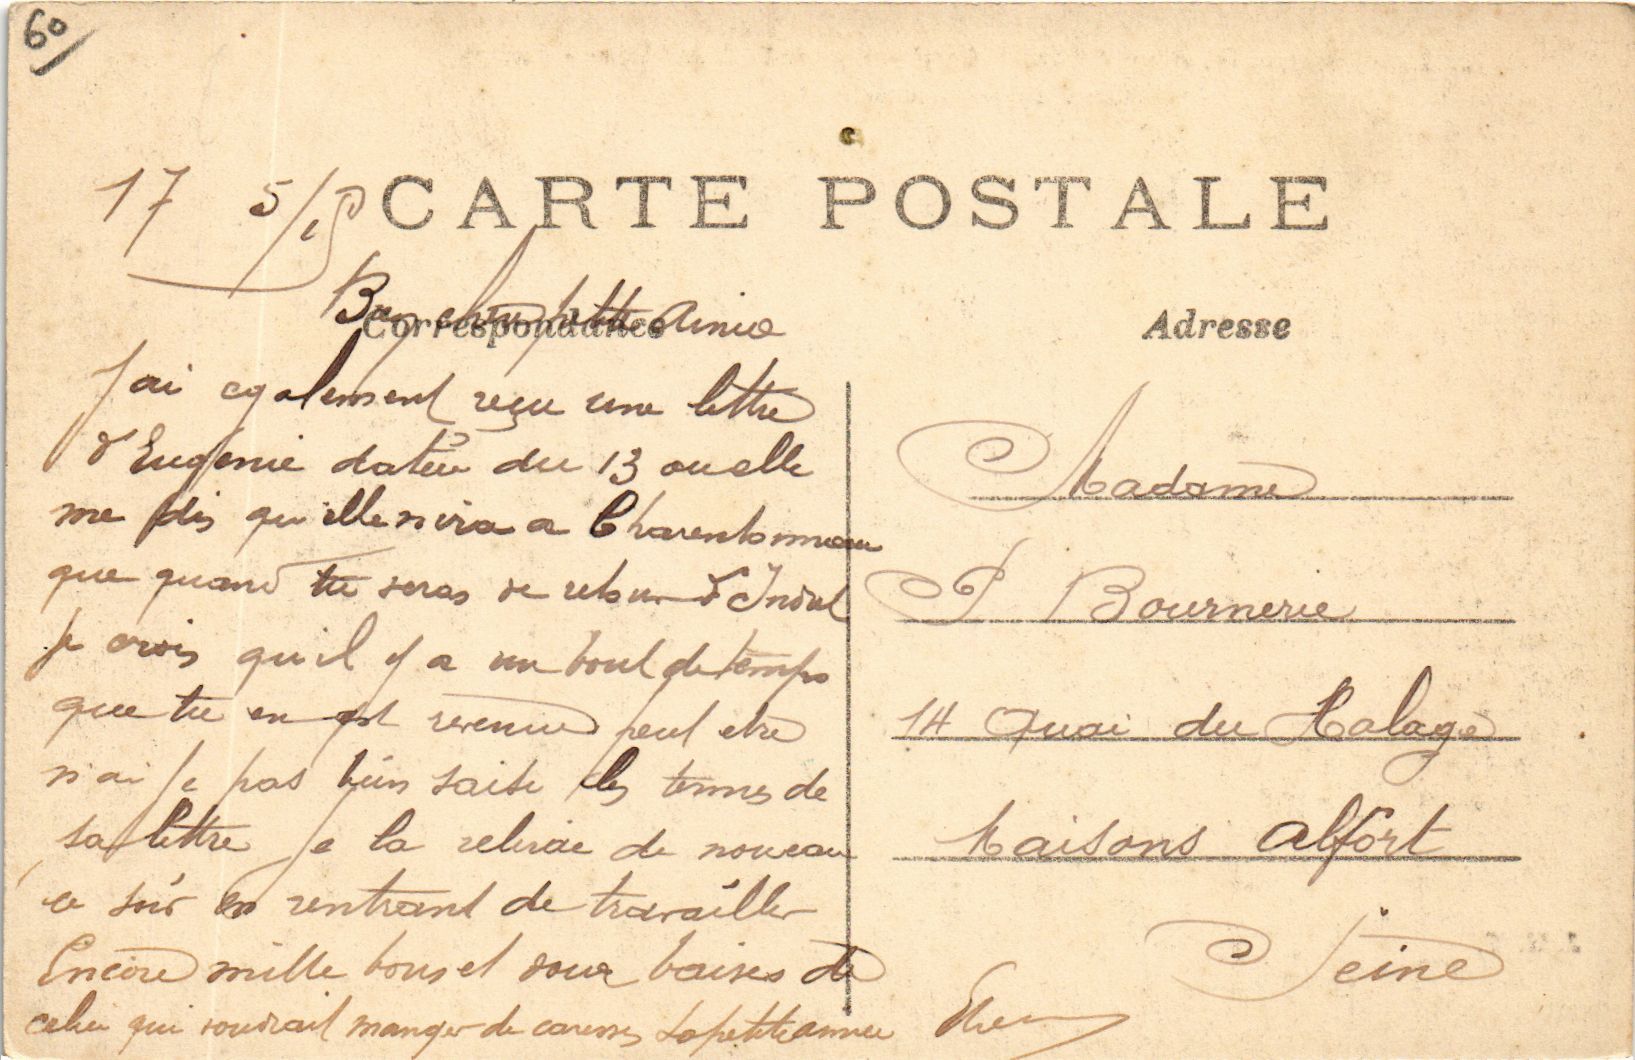 60
17 5/15
CARTE POSTALE
Correspondance
Bien chère petite Amie
Adresse
J'ai egalement reçu une lettre
d'Eugenie datée du 13 ou elle
me dis qu'elle n'ira a Charentonneau
que quand tu seras de retour d'Indret
Je crois qu'il y a un bout de temps
que tu en est revenue peut etre
n'ai je pas bien saisi les termes de
sa lettre je la relirai de nouveau
ce soir en rentrant de travailler
Encore mille bons et doux baises de
celui qui voudrait manger de caresses sa petite amie
Madame
P Bournerie
14 Quai du Halage
Maisons Alfort
Seine